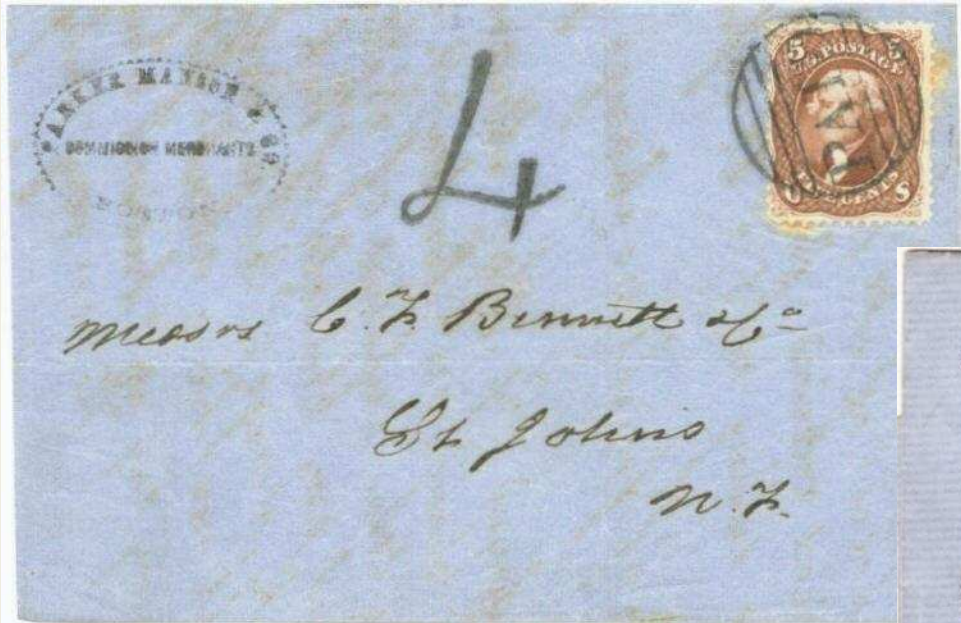 PARKER MANSON & CO.
COMMISSION MERCHANTS
BOSTON
4
5 5
U.S. POSTAGE
PAID
FIVE CENTS
U S
Messrs C. F. Bennett & Co
St Johns
N. F.